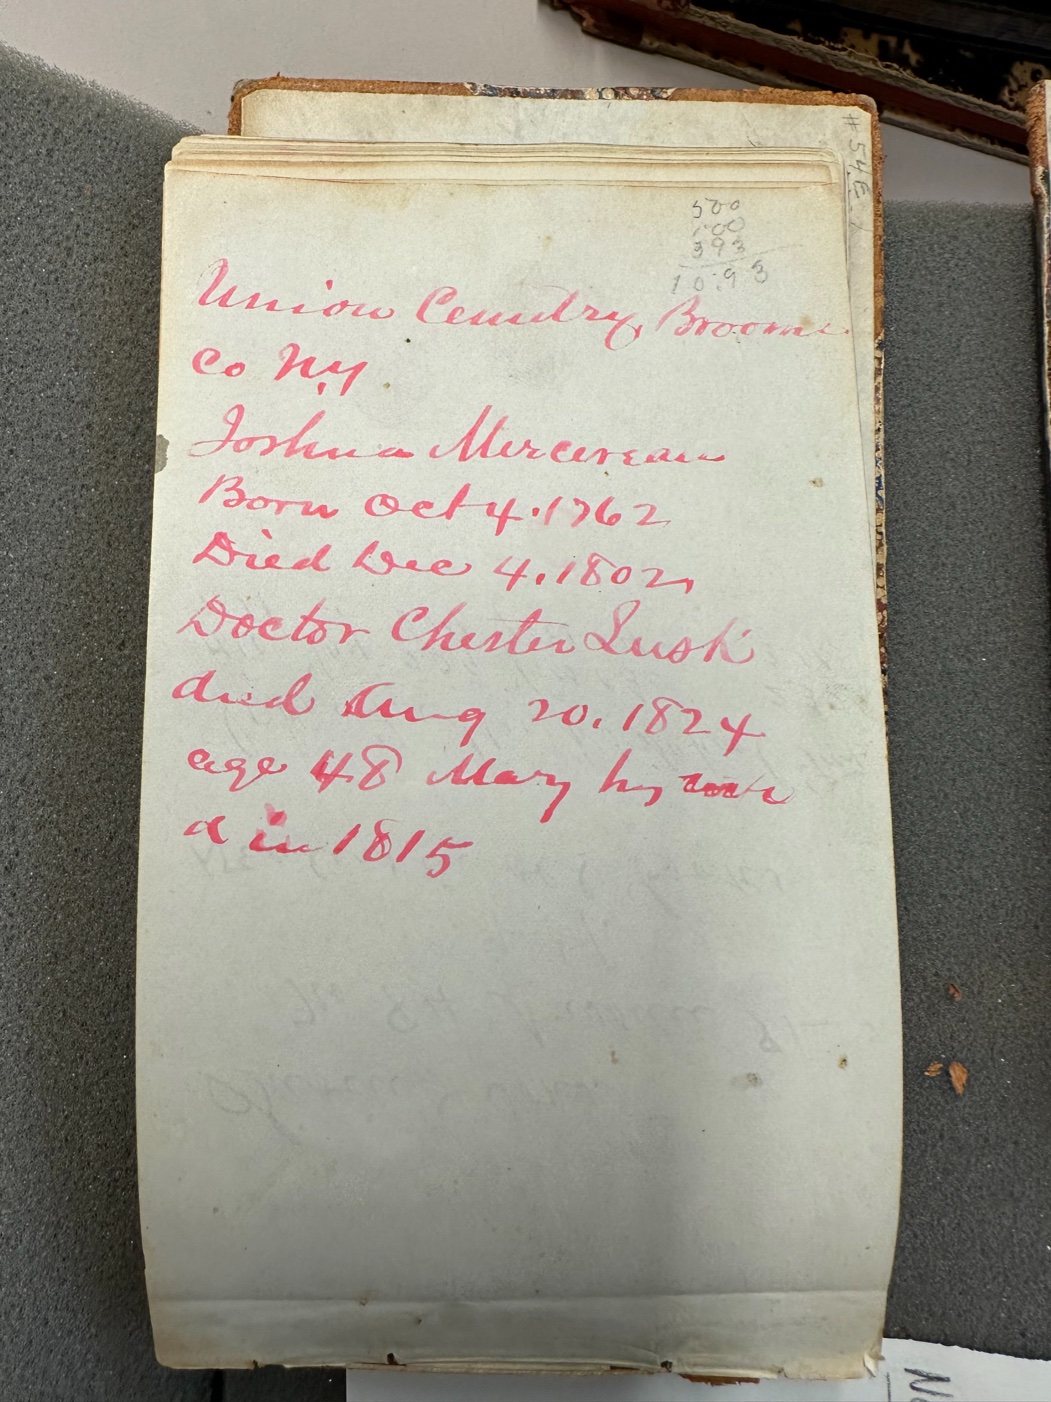 # 54 E
500
100
393
1093
Union Cemetry, Broome
Co N.Y
Joshua Mercereau
Born Oct 4.1762
Died Dec 4.1802,
Doctor Chester Lusk
died Aug 20.1824
age 48 Mary his
d in 1815